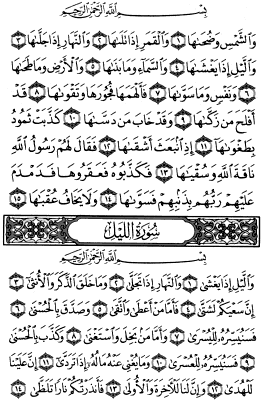 بِسْمِ اللَّهِ الرَّحْمَٰنِ الرَّحِيمِ
وَالشَّمْسِ وَضُحَاهَا ١ وَالْقَمَرِ إِذَا تَلَاهَا ٢ وَالنَّهَارِ إِذَا جَلَّاهَا ٣
وَاللَّيْلِ إِذَا يَغْشَاهَا ٤ وَالسَّمَاءِ وَمَا بَنَاهَا ٥ وَالْأَرْضِ وَمَا طَحَاهَا
٦ وَنَفْسٍ وَمَا سَوَّاهَا ٧ فَأَلْهَمَهَا فُجُورَهَا وَتَقْوَاهَا ٨ قَدْ
أَفْلَحَ مَن زَكَّاهَا ٩ وَقَدْ خَابَ مَن دَسَّاهَا ١٠ كَذَّبَتْ ثَمُودُ
بِطَغْوَاهَا ١١ إِذِ انبَعَثَ أَشْقَاهَا ١٢ فَقَالَ لَهُمْ رَسُولُ اللَّهِ
نَاقَةَ اللَّهِ وَسُقْيَاهَا ١٣ فَكَذَّبُوهُ فَعَقَرُوهَا فَدَمْدَمَ
عَلَيْهِمْ رَبُّهُم بِذَنبِهِمْ فَسَوَّاهَا ١٤ وَلَا يَخَافُ عُقْبَاهَا ١٥
سُورَةُ اللَّيْلِ
بِسْمِ اللَّهِ الرَّحْمَٰنِ الرَّحِيمِ
وَاللَّيْلِ إِذَا يَغْشَىٰ ١ وَالنَّهَارِ إِذَا تَجَلَّىٰ ٢ وَمَا خَلَقَ الذَّكَرَ وَالْأُنثَىٰ ٣
إِنَّ سَعْيَكُمْ لَشَتَّىٰ ٤ فَأَمَّا مَنْ أَعْطَىٰ وَاتَّقَىٰ ٥ وَصَدَّقَ بِالْحُسْنَىٰ ٦
فَسَنُيَسِّرُهُ لِلْيُسْرَىٰ ٧ وَأَمَّا مَن بَخِلَ وَاسْتَغْنَىٰ ٨ وَكَذَّبَ بِالْحُسْنَىٰ
٩ فَسَنُيَسِّرُهُ لِلْعُسْرَىٰ ١٠ وَمَا يُغْنِي عَنْهُ مَالُهُ إِذَا تَرَدَّىٰ ١١ إِنَّ عَلَيْنَا
لَلْهُدَىٰ ١٢ وَإِنَّ لَنَا لَلْآخِرَةَ وَالْأُولَىٰ ١٣ فَأَنذَرْتُكُمْ نَارًا تَلَظَّىٰ ١٤